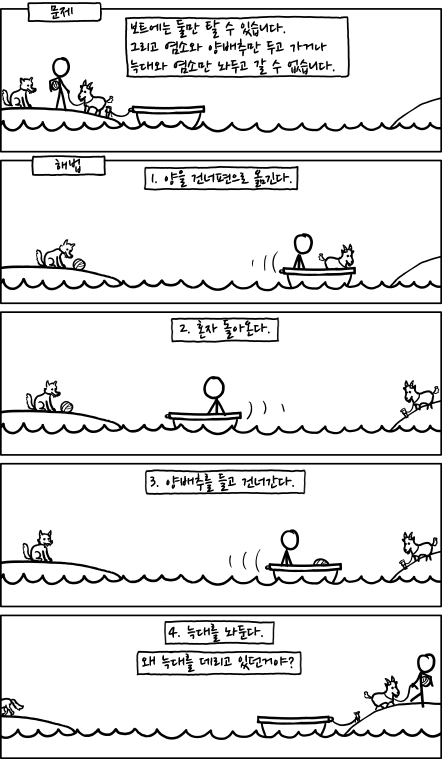 문제
보트에는 둘만 탈 수 있습니다.
그리고 염소와 양배추만 두고 가거나
늑대와 염소만 놔두고 갈 수 없습니다.
해법
1. 양을 건너편으로 옮긴다.
2. 혼자 돌아온다.
3. 양배추를 들고 건너간다.
4. 늑대를 놔둔다.
왜 늑대를 데리고 있던거야?